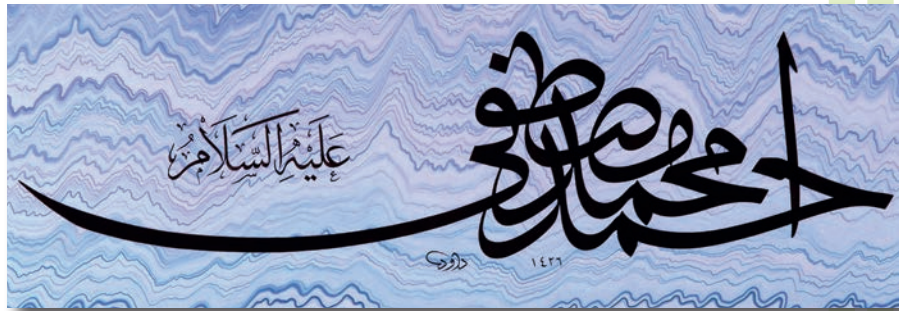 احمد محمد مصطفى
عَلَيْهِ السَّلَامُ
داود ١٤٢٦